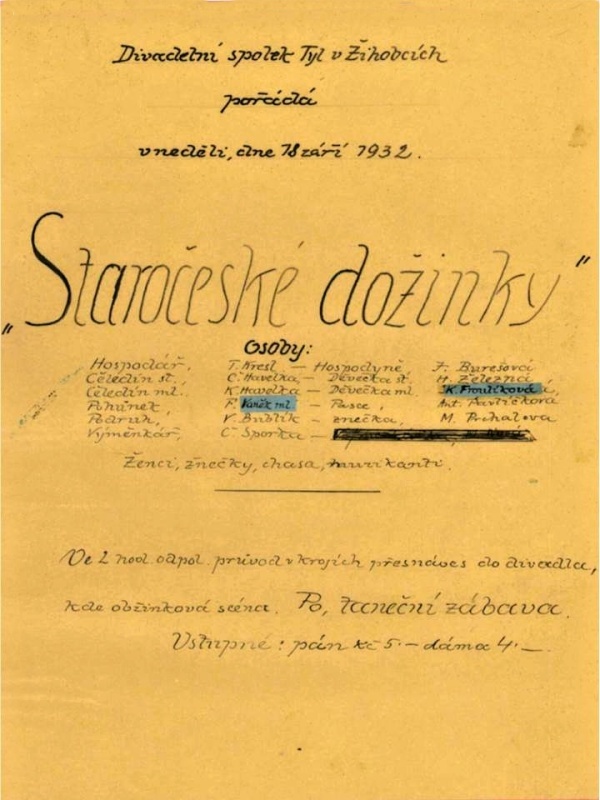 Divadelní spolek Tyl v Žihobcích
pořádá
v neděli, dne 18 září 1932.
„Staročeské dožinky“
Osoby:
Hospodář, T. Kresl — Hospodyně F. Burešová
Čeledín st., Č. Havelka — Děvečka st. H. Železná
Čeledín ml. K. Havelka — Děvečka ml. K. Froulíková,
Pohůnek, F. Vaněk ml. — Pasce, Ant. Pavlíčková
Podruh, V. Bublík — žnečka, M. Prchalova
Výměnkář, Č Sporka —
Ženci, žnečky, chasa, muzikanti.
Ve 2 hod. odpol. průvod v krojích přes náves do divadla,
kde obžinková scéna. Po, taneční zábava.
Vstupné: pán Kč 5·— dáma 4·—.